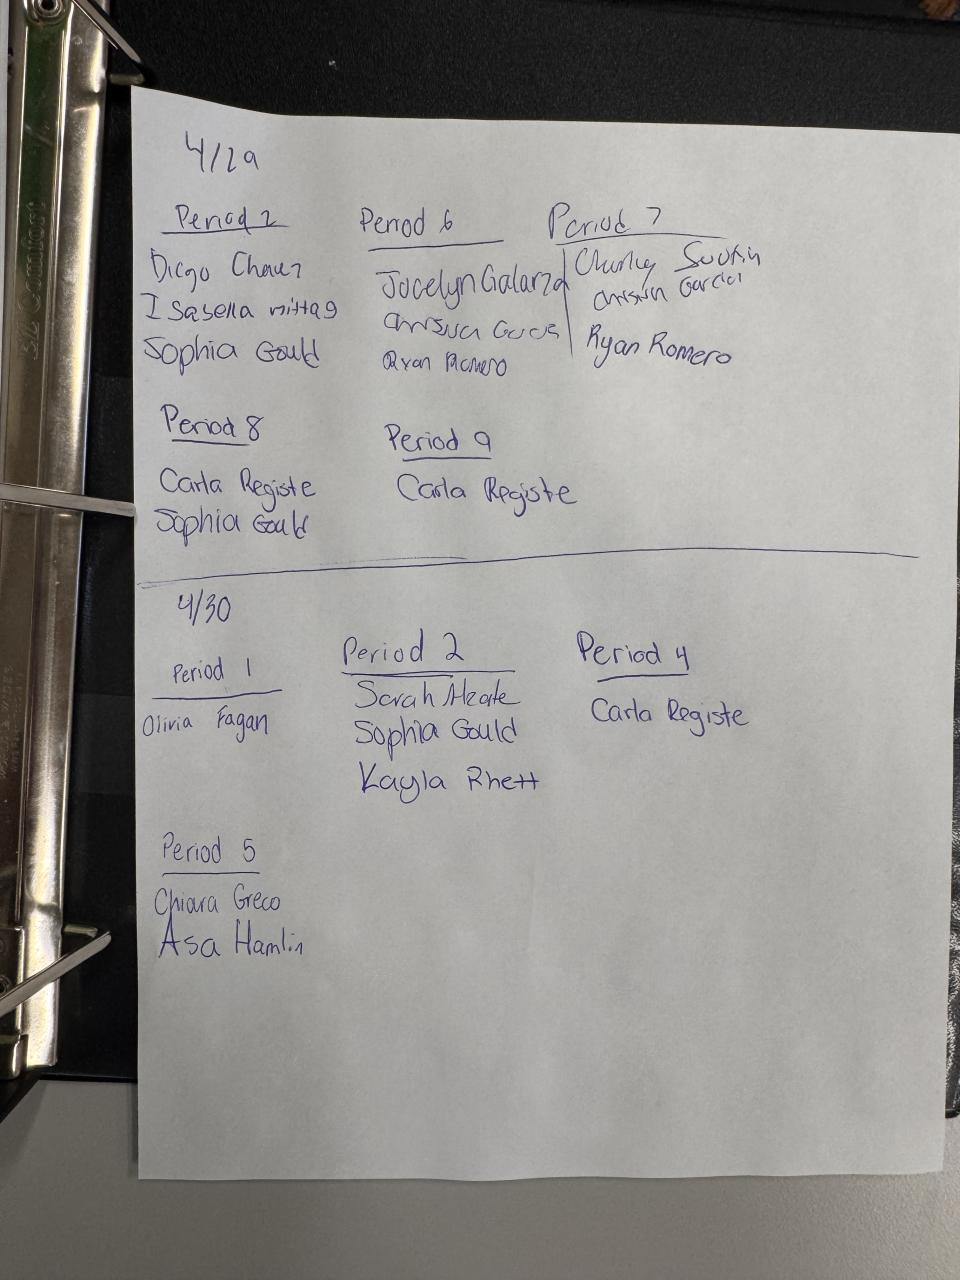 4/29
Period 2
Diego Chavez
Isabella mittag
Sophia Gould
Period 6
Jocelyn Galarza
Ryan Romero
Period 7
Charley
Garcia
Ryan Romero
Period 8
Carla Registe
Sophia Gould
Period 9
Carla Registe
4/30
Period 1
Olivia Fagan
Period 2
Sarah
Sophia Gould
Kayla Rhett
Period 4
Carla Registe
Period 5
Chiara Greco
Asa Hamlin